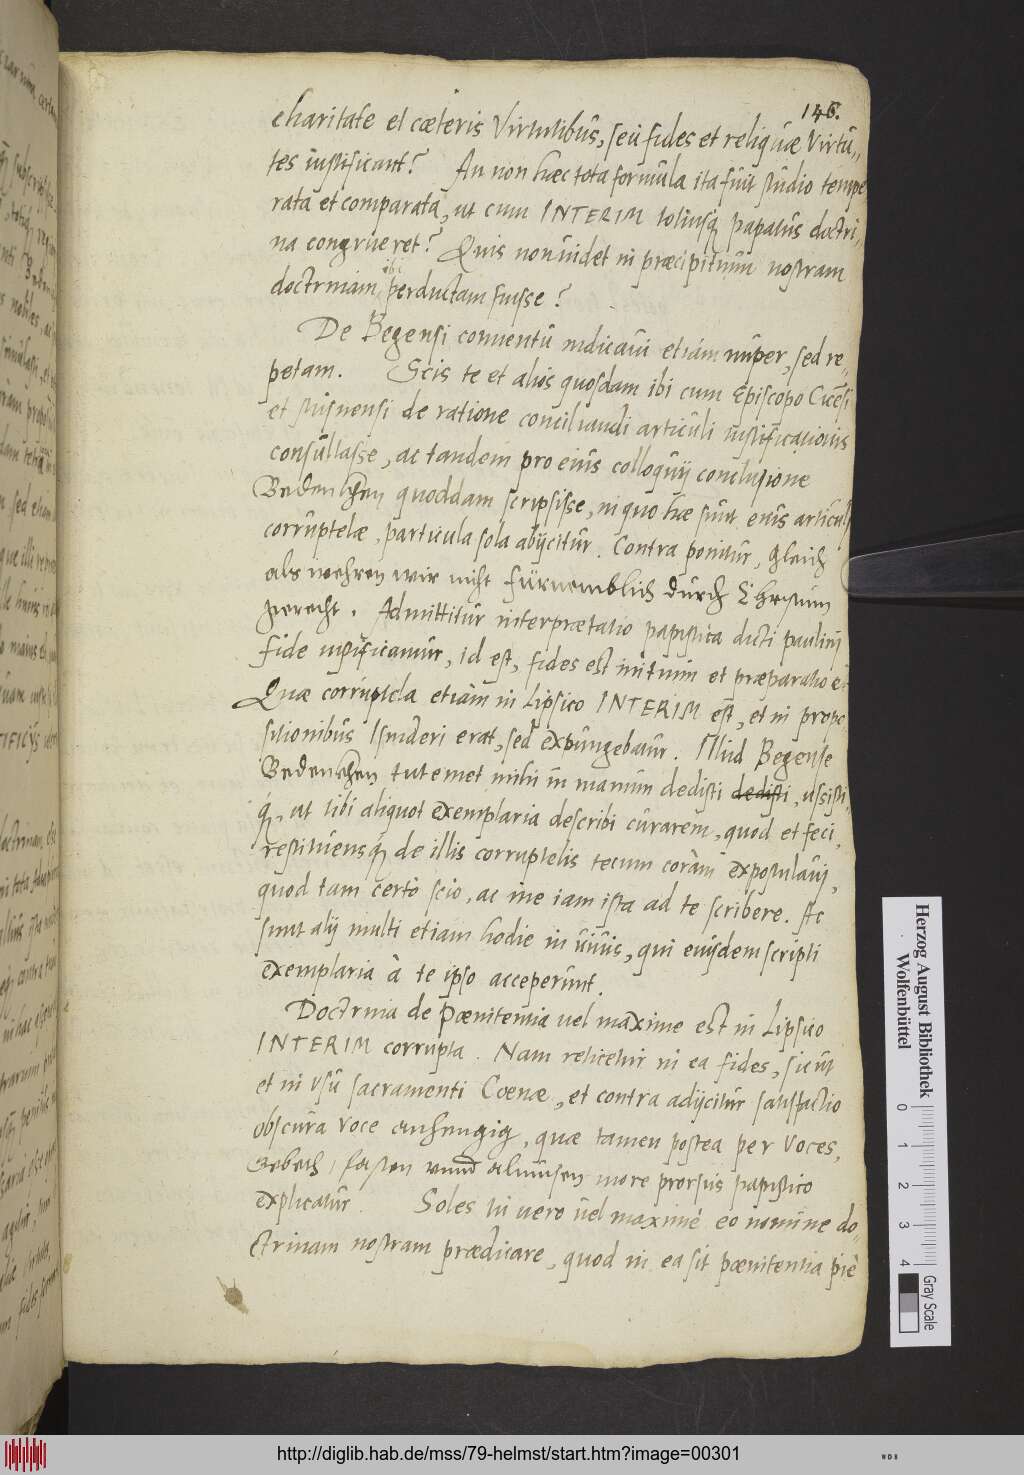 146.
charitate et cæteris Virtutibus, seu fides et reliquæ Virtu-
tes iustificant? An non hæc tota formula ita fuit studio tempe
rata et comparata, ut cum INTERIM totiusq papatus doctri-
na congrueret? Quis non uidet in præcipitium nostram
doctrinam ibi perductam fuisse?
De Begensi conuentu indicaui etiam nuper, sed re-
petam. Scis te et alios quosdam ibi cum Episcopo Cicensi
et Misnensi de ratione conciliandi articuli iustificationis
consultasse, ac tandem pro eius colloquij conclusione
Bedencken quoddam scripsisse, in quo hæ sunt eius articuli
corruptelæ, particula sola abijcitur. Contra ponitur, gleich
als wehren wir nicht fürnemblich durch Christum
gerecht. Admittitur interpretatio papistica dicti paulini
fide iustificamur, id est, fides est initium et præparatio
Quæ corruptela etiam in Lipsico INTERIM est, et in propo-
sitionibus Isnideri erat, sed expungebatur. Illud Begense
Bedencken tutemet mihi in manum dedisti dedisti, iussisti-
q, ut tibi aliquot exemplaria describi curarem, quod et feci,
restituensq de illis corruptelis tecum coràm expostulaui,
quod tam certo scio, ac me iam ista ad te scribere. Ac
sunt alij multi etiam hodie in uiuis, qui eiusdem scripti
exemplaria à te ipso acceperunt.
Doctrina de Pœnitentia uel maxime est in Lipsico
INTERIM corrupta. Nam reticetur in ea fides, sicut
et in usu sacramenti Cœnæ, et contra adijcitur satisfactio
obscura voce anhengig, quæ tamen postea per voces,
Gebeth, fasten vnnd almusen more prorsus papistico
explicatur. Soles tu uero uel maximè eo nomine do-
ctrinam nostram prædicare, quod in ea sit pœnitentia piè
Herzog August Bibliothek
Wolfenbüttel
0 1 2 3 4
Gray Scale
http://diglib.hab.de/mss/79-helmst/start.htm?image=00301